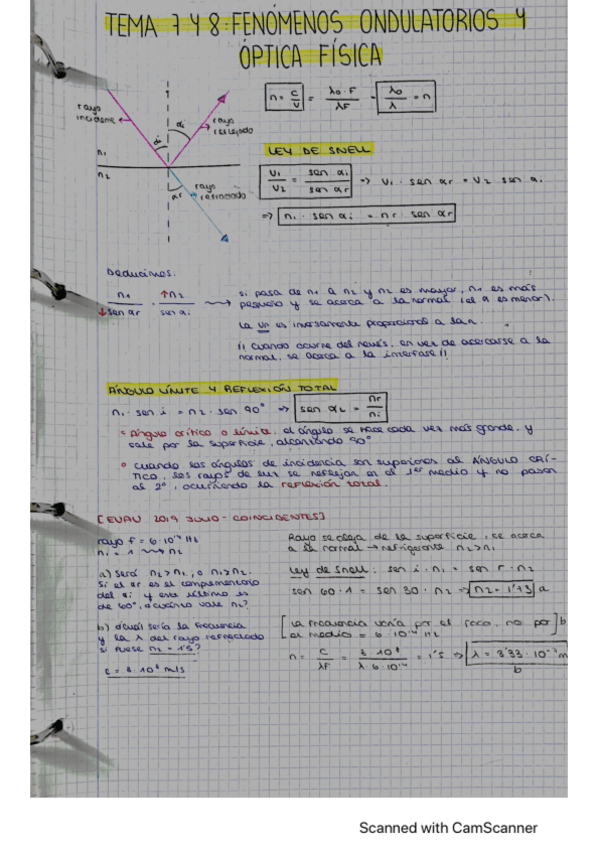 TEMA 7 Y 8: FENÓMENOS ONDULATORIOS Y
ÓPTICA FÍSICA
rayo
incidente
αi
αi
rayo
reflejado
n1
n2
αr
rayo
refractado
n = c/v = λ0 · F / λF = λ0/λ = n
LEY DE SNELL
v1/v2 = sen αi / sen αr => v1 · sen αr = v2 · sen αi
=> ni · sen αi = nr · sen αr
Deducimos:
n1 / ↓sen αr · ↑n2 / sen αi
si pasa de n1 a n2 y n2 es mayor, n1 es más
pequeño y se acerca a la normal (el α es menor).
La es inversamente proporcional a la n.
¡¡ Cuando ocurre del revés, en vez de acercarse a la
normal, se acerca a la interfase!!
ÁNGULO LÍMITE Y REFLEXIÓN TOTAL
n1 · sen i = n2 · sen 90° => sen αL = nr/ni
Ángulo crítico o límite: el ángulo se hace cada vez más grande, y
sale por la superficie, alcanzando 90°
cuando los ángulos de incidencia son superiores al ÁNGULO CRÍ-
TICO, los rayos de luz se reflejan en el 1er medio y no pasan
al 2°, ocurriendo la reflexión total.
[EVAU 2019 JULIO - COINCIDENTES]
rayo f = 6 · 10¹⁴ Hz
n1 = 1 n2
a) Será n2 > n1, o n1 > n2.
Si el αr es el complementario
del αi y este último es
de 60°, ¿cuánto vale n2?
b) ¿Cuál sería la frecuencia
y la λ del rayo refractado
si fuese n2 = 1'5?
c = 3 · 10⁸ m/s
Rayo se aleja de la superficie, se acerca
a la normal → n2 > n1
Ley de Snell: sen i · n1 = sen r · n2
sen 60 · 1 = sen 30 · n2 => n2 = 1'73 a
[La frecuencia varía por el foco, no por
al medio = 6 · 10¹⁴ Hz] b
n = c/λF = 3 · 10⁸ / λ · 6 · 10¹⁴ = 1'5 => λ = 3'33 · 10⁻⁷ m
b
Scanned with CamScanner